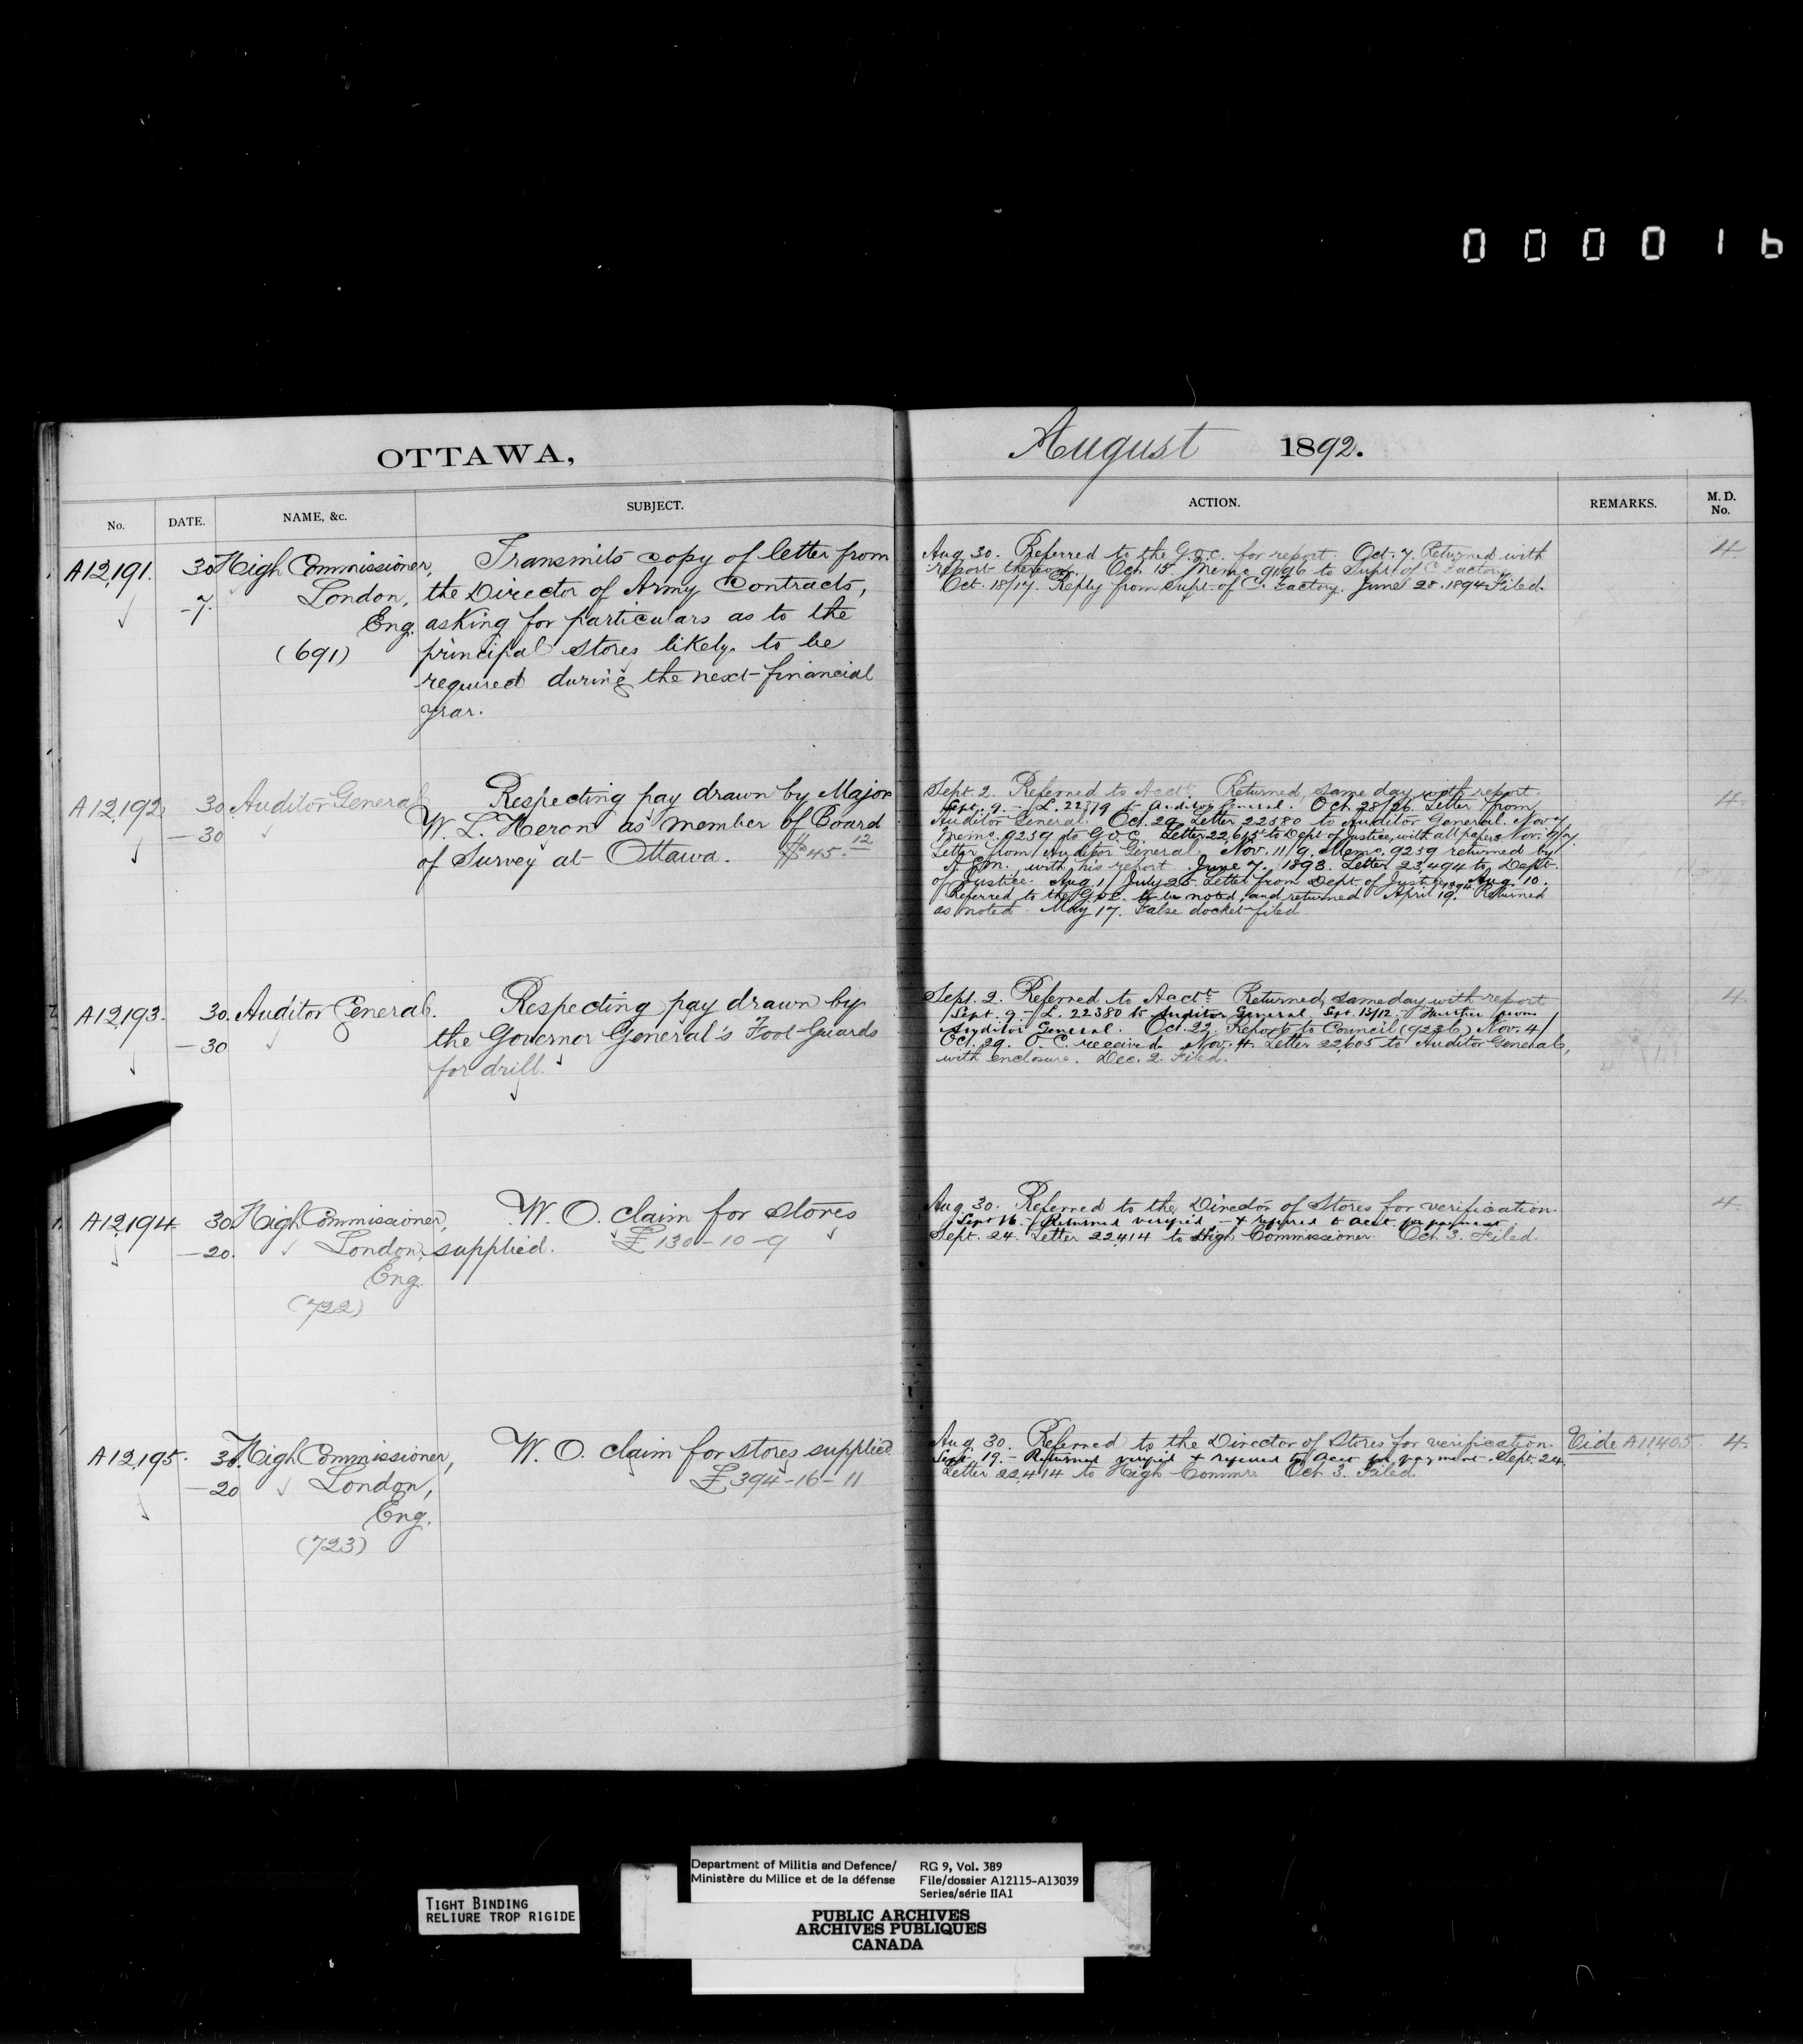 000016
OTTAWA,
August 1892.
No. DATE. NAME, &c. SUBJECT. ACTION. REMARKS. M. D. No.
A12,191. 30 High Commissioner,
-7. London,
Eng.
(691)
Transmits copy of letter from
the Director of Army Contracts,
asking for particulars as to the
principal stores likely to be
required during the next financial
year.
Aug. 30. Referred to the G.O.C. for report. Oct. 7. Returned with
report thereon. Oct. 15. Memo 9196 to Supt. of C. Factory.
Oct. 18/17. Reply from Supt. of C. Factory. June 28. 1894 Filed.
4
A12,192. 30 Auditor General
-30
Respecting pay drawn by Major
W. L. Heron as member of Board
of Survey at Ottawa. $45 12
Sept. 2. Referred to Acct. Returned same day with report.
Sept. 9. - L. 22379 to Auditor General. Oct. 28/26. Letter from
Auditor General. Oct. 29. Letter 22580 to Auditor General. Nov 7
Memo. 9259 to G.O.C. Letter 22,615 to Dept of Justice, with all papers Nov. 9/7.
Letter from Auditor General. Nov. 11/9. Memo. 9259 returned by
with his report June 7. 1893. Letter 23,494 to Dept.
of Justice. Aug. 1/July 25. Letter from Dept. of Justice. Aug. 10.
Referred to the G.O.C. to be noted, and returned April 19. 1894. Returned
as noted. May 17. False docket filed
4.
A12,193. 30. Auditor General.
-30
Respecting pay drawn by
the Governor General's Foot Guards
for drill.
Sept. 2. Referred to Acct. Returned same day with report
Sept. 9 - L. 22380 to Auditor General. Sept. 13/12 - Further from
Auditor General. Oct. 22. Report to Council (9236) Nov. 4/
Oct. 29. O. C. received. Nov. 4. Letter 22,605 to Auditor General,
with enclosure. Dec. 2. Filed.
4
A12,194. 30 High Commissioner,
-20. London,
Eng.
(722)
W. O. claim for stores
supplied. £130-10-9
Aug. 30. Referred to the Director of Stores for verification.
Sept 16. - Returned verified - & referred to Acct. for payment.
Sept. 24. Letter 22,414 to High Commissioner. Oct. 3. Filed.
4.
A12,195. 30. High Commissioner,
-20 London,
Eng.
(723)
W. O. claim for stores supplied
£394-16-11
Aug. 30. Referred to the Director of Stores for verification.
Sept. 19. - Returned verified & referred to Acct for payment. Sept. 24.
Letter 22,414 to High Commr. Oct 3. Filed.
Vide A11405 4.
TIGHT BINDING
RELIURE TROP RIGIDE
Department of Militia and Defence/
Ministère du Milice et de la défense
RG 9, Vol. 389
File/dossier A12115-A13039
Series/série IIA1
PUBLIC ARCHIVES
ARCHIVES PUBLIQUES
CANADA